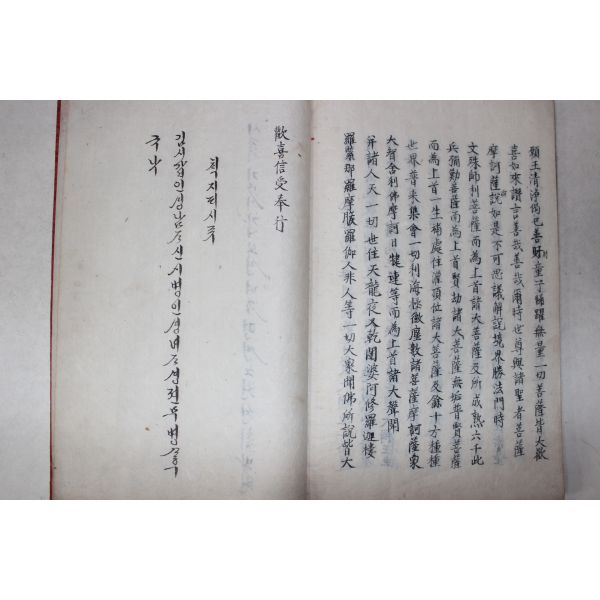 願王清淨偈已善財童子踊躍無量一切菩薩皆大歡
喜如來讚言善哉善哉爾時世尊與諸聖者菩薩
摩訶薩說如是不可思議解說境界勝法門時
文殊師利菩薩而為上首諸大菩薩及所成熟六千此
兵彌勒菩薩而為上首賢劫諸大菩薩無垢普賢菩薩
而為上首一生補處住灌頂位諸大菩薩及餘十方種種
世界普來集會一切利海極微塵數諸菩薩摩訶薩衆
大智舍利佛摩訶目犍連等而為上首諸大聲聞
并諸人天一切世住天龍夜叉乾闥婆阿修羅迦樓
羅緊那羅摩睺羅伽人非人等一切大衆聞佛所說皆大
歡喜信受奉行
칙지퇴시쥬
김시갑인싱남쥬신시병인싱
극낙